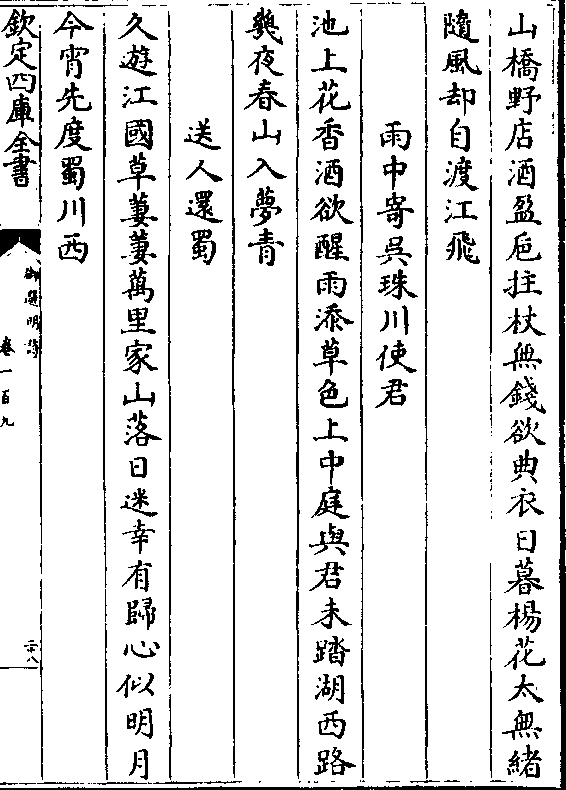 山橋野店酒盈巵拄杖無錢欲典衣日暮楊花太無緒
隨風却自渡江飛
雨中寄呉珠川使君
池上花香酒欲醒雨添草色上中庭與君未踏湖西路
幾夜春山入夢青
送人還蜀
久遊江國草萋萋萬里家山落日迷幸有歸心似明月
今宵先度蜀川西
欽定四庫全書
御選明詩
卷一百九
二十八